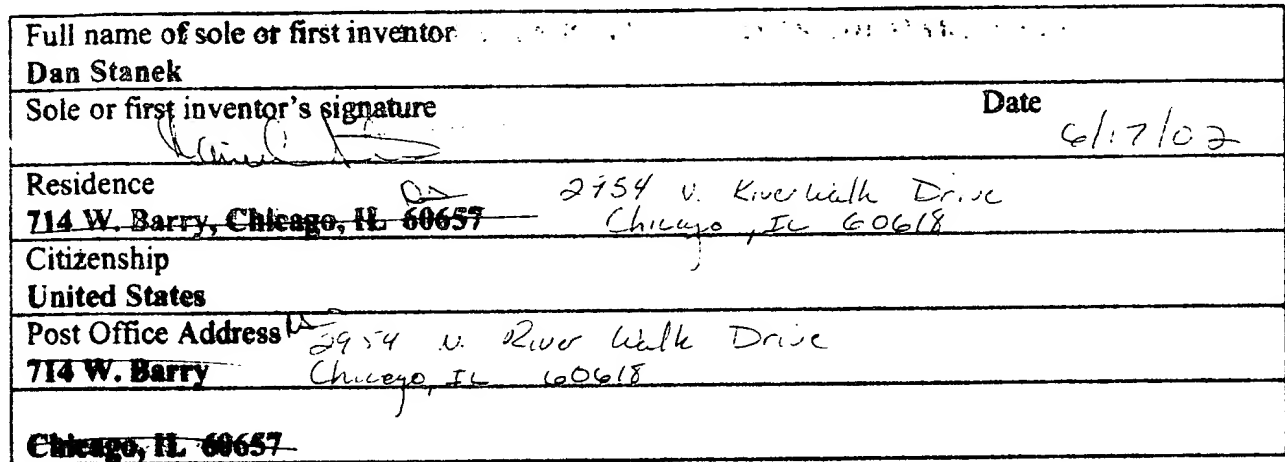 Full name of sole or first inventor
Dan Stanek
Sole or first inventor's signature Date
6/17/02
Residence DS 2954 N. River Walk Drive
714 W. Barry, Chicago, IL 60657 Chicago, IL 60618
Citizenship
United States
Post Office Address DS 2954 N. River Walk Drive
714 W. Barry Chicago, IL 60618
Chicago, IL 60657